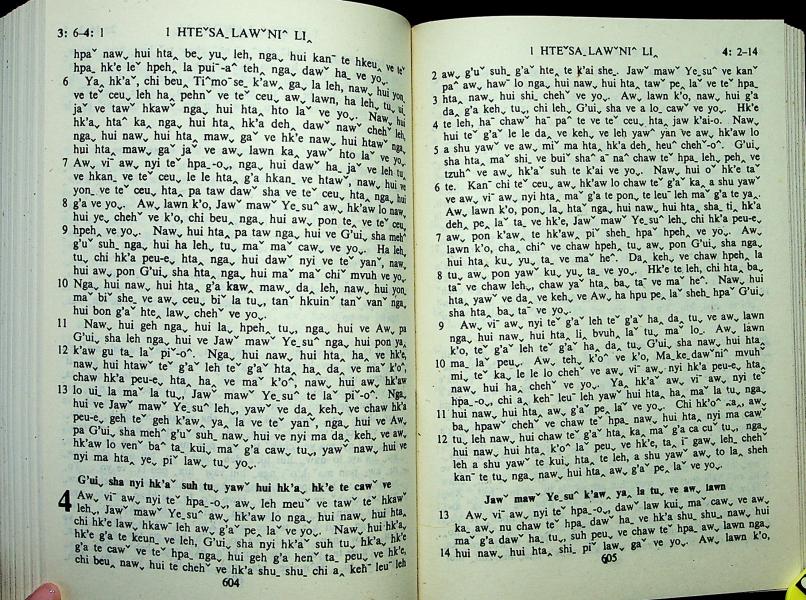 3: 6–4: 1 1 HTEˇSA_LAWˇNIˆ LI‸
hpaˇ naw˯ hui hta‸ be˯ yu˯ leh, nga˯ hui kanˉ te hkeu˯ ve teˇ
hpa_ hk'e leˇ hpeh˯ la pui¯-aˆ teh˯ nga˯ dawˇ ha_ ve yo˯.
6 Ya˯ hk'aˇ, chi beu˯ Tiˆmoˉse_ k'aw˯ ga˯ la leh, naw˯ hui yon˯
ve teˇ ceu˯ leh ha˯ pehnˇ ve teˇ ceu˯ aw˯ lawn˯ ha leh˯ tu˯ ui˯
jaˇ ve tawˇ hkawˇ nga˯ hui hta‸ hto laˇ ve yo˯. Naw˯ hui
hk'a˯ htaˆ ka˯ nga˯ hui hta‸ hk'a deh˯ dawˇ nawˇ chehˇ leh˯
nga˯ hui naw˯ hui hta‸ maw˯ gaˇ ve hk'e naw˯ hui htawˇ nga˯
hui hta‸ maw˯ gaˇ jaˇ ve aw˯ lawn˯ ka˯ yawˇ hto laˇ ve yo˯.
7 Aw˯ viˉ aw˯ nyi teˇ hpa_-o˯, nga˯ hui dawˇ ha_ jaˇ ve leh tu˯
ve hkanˉ ve teˇ ceu˯ le le hta‸ g'a hkan˯ ve htawˇ, naw˯ hui ve
yon_ ve teˇ ceu˯ hta‸ pa taw dawˇ sha ve teˇ ceu˯ hta‸ nga˯ hui
8 g'a ve yo˯. Aw˯ lawn k'o, Jawˇ mawˇ Ye_suˆ aw˯ hk'aw lo naw˯
hui ye˯ chehˇ ve k'o, chi beu˯ nga˯ hui aw˯ pon te˯ ve teˇ ceu˯
9 hpeh˯ ve yo˯. Naw˯ hui hta‸ pa taw nga˯ hui ve G'ui˯ sha mehˆ
g'uˇ suh_ nga˯ hui ha leh˯ tu˯ maˇ maˇ caw˯ ve yo˯. Ha leh˯
tu˯ chi hk'a peu-e˯ hta‸ nga˯ hui dawˇ nyi ve teˇ yanˇ, naw˯
hui aw˯ pon G'ui˯ sha hta‸ nga˯ hui ma maˇ chiˇ mvuh ve yo˯.
10 Nga˯ hui naw˯ hui hta‸ g'a kaw˯ maw˯ da˯ leh, naw˯ hui yon_
maˇ biˇ she_ ve aw˯ ceu˯ biˇ la tu˯, tanˆ hkuinˇ tanˇ vanˇ nga˯
hui bon g'aˇ hte˯ law˯ chehˇ ve yo˯.
11 Naw˯ hui geh nga˯ hui la˯ hpeh˯ tu˯, nga˯ hui ve Aw˯ pa
G'ui˯ sha leh nga˯ hui ve Jawˇ mawˇ Ye_suˆ nga˯ hui pon ya˯
12 k'aw gu ta˯ la piˇ-oˆ. Nga˯ hui naw˯ hui hta‸ ha˯ ve hk'e,
naw˯ hui htawˇ teˇ g'aˇ leh teˇ g'aˇ hta‸ ha˯ da˯ ve maˇ k'oˆ,
chaw hk'a peu-e˯ hta‸ ha˯ ve maˇ k'oˆ, naw˯ hui aw˯ hk'aw
13 lo ui˯ la maˇ la tu˯, Jawˇ mawˇ Ye_suˆ te laˇ piˇ-oˆ. Nga˯
hui ve Jawˇ mawˇ Ye_suˆ leh˯, yawˇ ve da˯ keh˯ ve chaw hk'a
peu-e˯ geh teˇ geh k'aw˯ ya˯ la ve teˇ yanˇ, nga˯ hui ve Aw˯
pa G'ui˯ sha mehˆ g'uˇ suh_ naw˯ hui ve nyi ma da˯ keh˯ ve aw˯
hk'aw lo venˇ baˆ ta_ kui˯ maˇ g'a caw˯ tu˯, yawˇ naw˯ hui ve
nyi ma hta‸ ye˯ piˇ law˯ tu˯ yo˯.
G'ui˯ sha nyi hk'aˇ suh tu˯ yawˇ hui hk'a˯ hk'e te caw˯ ve
4 Aw˯ viˉ aw˯ nyi teˇ hpa_-o˯, aw˯ leh meuˇ ve tawˇ teˇ hkawˇ
leh˯, Jawˇ mawˇ Ye_suˆ aw˯ hk'aw lo nga˯ hui naw˯ hui hta‸
chi hk'e law˯ hkawˇ leh aw˯ g'aˇ pe˯ laˇ ve yo˯. Naw˯ hui hk'a˯
hk'e g'a te keun˯ ve leh, G'ui˯ sha nyi hk'aˇ suh tu˯ hk'a˯ hk'e
g'a te caw˯ ve teˇ hpa_ nga˯ hui geh g'a henˇ ta_ peu˯ ve hk'e,
chi beu˯ naw˯ hui te chehˇ ve hk'a shu_ shu_ chi a‸ kehˉ leuˉ leh
604
1 HTEˇSA_LAWˇNIˆ LI‸ 4: 2–14
2 aw˯ g'uˇ suh_ g'aˇ hte˯ te k'ai she_. Jawˇ mawˇ Ye_suˆ ve kanˇ
paˆ aw˯ hawˉ lo nga˯ hui naw˯ hui hta‸ tawˇ pe˯ laˇ ve teˇ hpa_
3 hta‸ naw˯ hui shi˯ chehˇ ve yo˯. Aw˯ lawn k'o, naw˯ hui g'a
da˯ g'a keh˯ tu˯, chi leh˯ G'ui˯ sha ve a lo˯ cawˇ ve yo˯. Hk'e
4 te leh˯ haˆ chawˇ haˇ paˆ te ve teˇ ceu˯ hta‸ jaw k'ai-o. Naw˯
hui teˇ g'aˇ le le da˯ ve keh˯ ve leh yawˇ yanˇ ve aw˯ hk'aw lo
5 a shu yawˇ ve aw˯ miˇ ma hta‸ hk'a deh˯ heuˆ chehˇ-oˇ. G'ui˯
sha hta‸ maˇ shi˯ ve buiˇ shaˆ aˉ naˆ chaw teˇ hpa_ leh˯ peh˯ ve
tzuhˆ ve aw˯ hk'aˇ suh te k'ai ve yo˯. Naw˯ hui oˇ hk'e taˇ
6 te_ Kanˉ chi teˇ ceu˯ aw˯ hk'aw lo chaw teˇ g'aˇ ka˯ a shu yawˇ
ve aw˯ viˉ aw˯ nyi hta‸ maˇ g'a te pon_ te leuˉ leh maˇ g'a te ya_
Aw˯ lawn k'o, pon_ la˯ htaˇ nga˯ hui naw˯ hui hta‸ sha_ ti˯ hk'a
deh˯ pe˯ laˇ ta_ ve hk'e, Jawˇ mawˇ Ye_suˆ leh˯ chi hk'a peu-e˯
7 aw˯ pon k'aw˯ te hk'aw˯ piˇ sheh_ hpaˇ ve yo˯. Aw˯
lawn k'o, cha˯ chiˆ ve chaw hpeh˯ tu˯ aw˯ pon G'ui˯ sha nga˯
hui hta‸ ku˯ yu˯ ta_ ve maˇ heˆ. Da˯ keh˯ ve chaw hpeh˯ la
8 tu˯ aw˯ pon yawˇ ku˯ yu˯ ta_ ve yo˯. Hk'e te leh˯ chi hta‸ ba˯
taˉ ve chaw leh˯ chaw yaˇ hta‸ ba˯ taˉ ve maˇ heˆ. Naw˯ hui
hta‸ yawˇ ve da˯ ve keh˯ ve Aw˯ ha hpu pe˯ laˇ sheh_ hpaˇ G'ui˯
sha hta‸ ba˯ taˉ ve yo˯.
9 Aw˯ viˉ aw˯ nyi teˇ g'aˇ leh teˇ g'aˇ ha˯ da˯ tu˯ ve aw˯ lawn
nga˯ hui naw˯ hui hta‸ li˯ bvuh˯ laˇ tu˯ maˇ lo_. Aw˯ lawn
k'o, teˇ g'aˇ leh teˇ g'aˇ ha˯ da˯ tu˯ G'ui˯ sha naw˯ hui hta‸
10 ma˯ laˇ peu˯. Aw˯ teh˯ k'oˆ ve k'o, Ma_ke_dawˇniˆ mvuhˇ
mi˯ teˇ ka˯ le le lo chehˇ ve aw˯ viˉ aw˯ nyi hk'a peu-e˯ hta‸
naw˯ hui ha˯ chehˇ ve yo˯. Ya˯ hk'aˇ aw˯ viˉ aw˯ nyi teˇ
hpa_-o˯, chi a‸ kehˉ leuˉ leh yawˇ hui hta‸ ha˯ maˇ la tu˯ nga˯
11 hui naw˯ hui hta‸ aw˯ g'aˇ pe˯ laˇ ve yo˯. Chi hk'oˆ a˯ aw˯
ba˯ hpawˇ chehˇ ve chaw teˇ hpa_ naw˯ hui hta‸ nyi ma cawˇ
12 tu˯ leh naw˯ hui chaw teˇ g'aˇ hta‸ ka˯ maˇ g'a ca cuˇ tu˯, nga˯
hui naw˯ hui hta‸ k'oˆ laˇ peu˯ ve hk'e, ta˯ iˇ gaw˯ leh_ chehˇ
leh a shu yawˇ te kui˯ hta‸ te leh, a shu yawˇ aw˯ to la˯ sheh
kanˉ te tu˯ nga˯ naw˯ hui hta‸ aw˯ g'aˇ pe˯ laˇ ve yo˯.
Jawˇ mawˇ Ye_suˆ k'aw˯ ya˯ la tu˯ ve aw˯ lawn
13 Aw˯ viˉ aw˯ nyi teˇ hpa_-o˯, dawˇ law kui˯ maˇ caw˯ ve aw˯
ka˯ aw˯ nu chaw teˇ hpa_ dawˇ ha_ ve hk'a shu_ shu_ naw˯ hui
maˇ g'a dawˇ ha_ tu˯, suh peu˯ ve chaw teˇ hpa_ aw˯ lawn nga˯
14 hui naw˯ hui hta‸ shi_ piˇ law˯ gaˇ ve yo˯. Aw˯ lawn k'o,
605